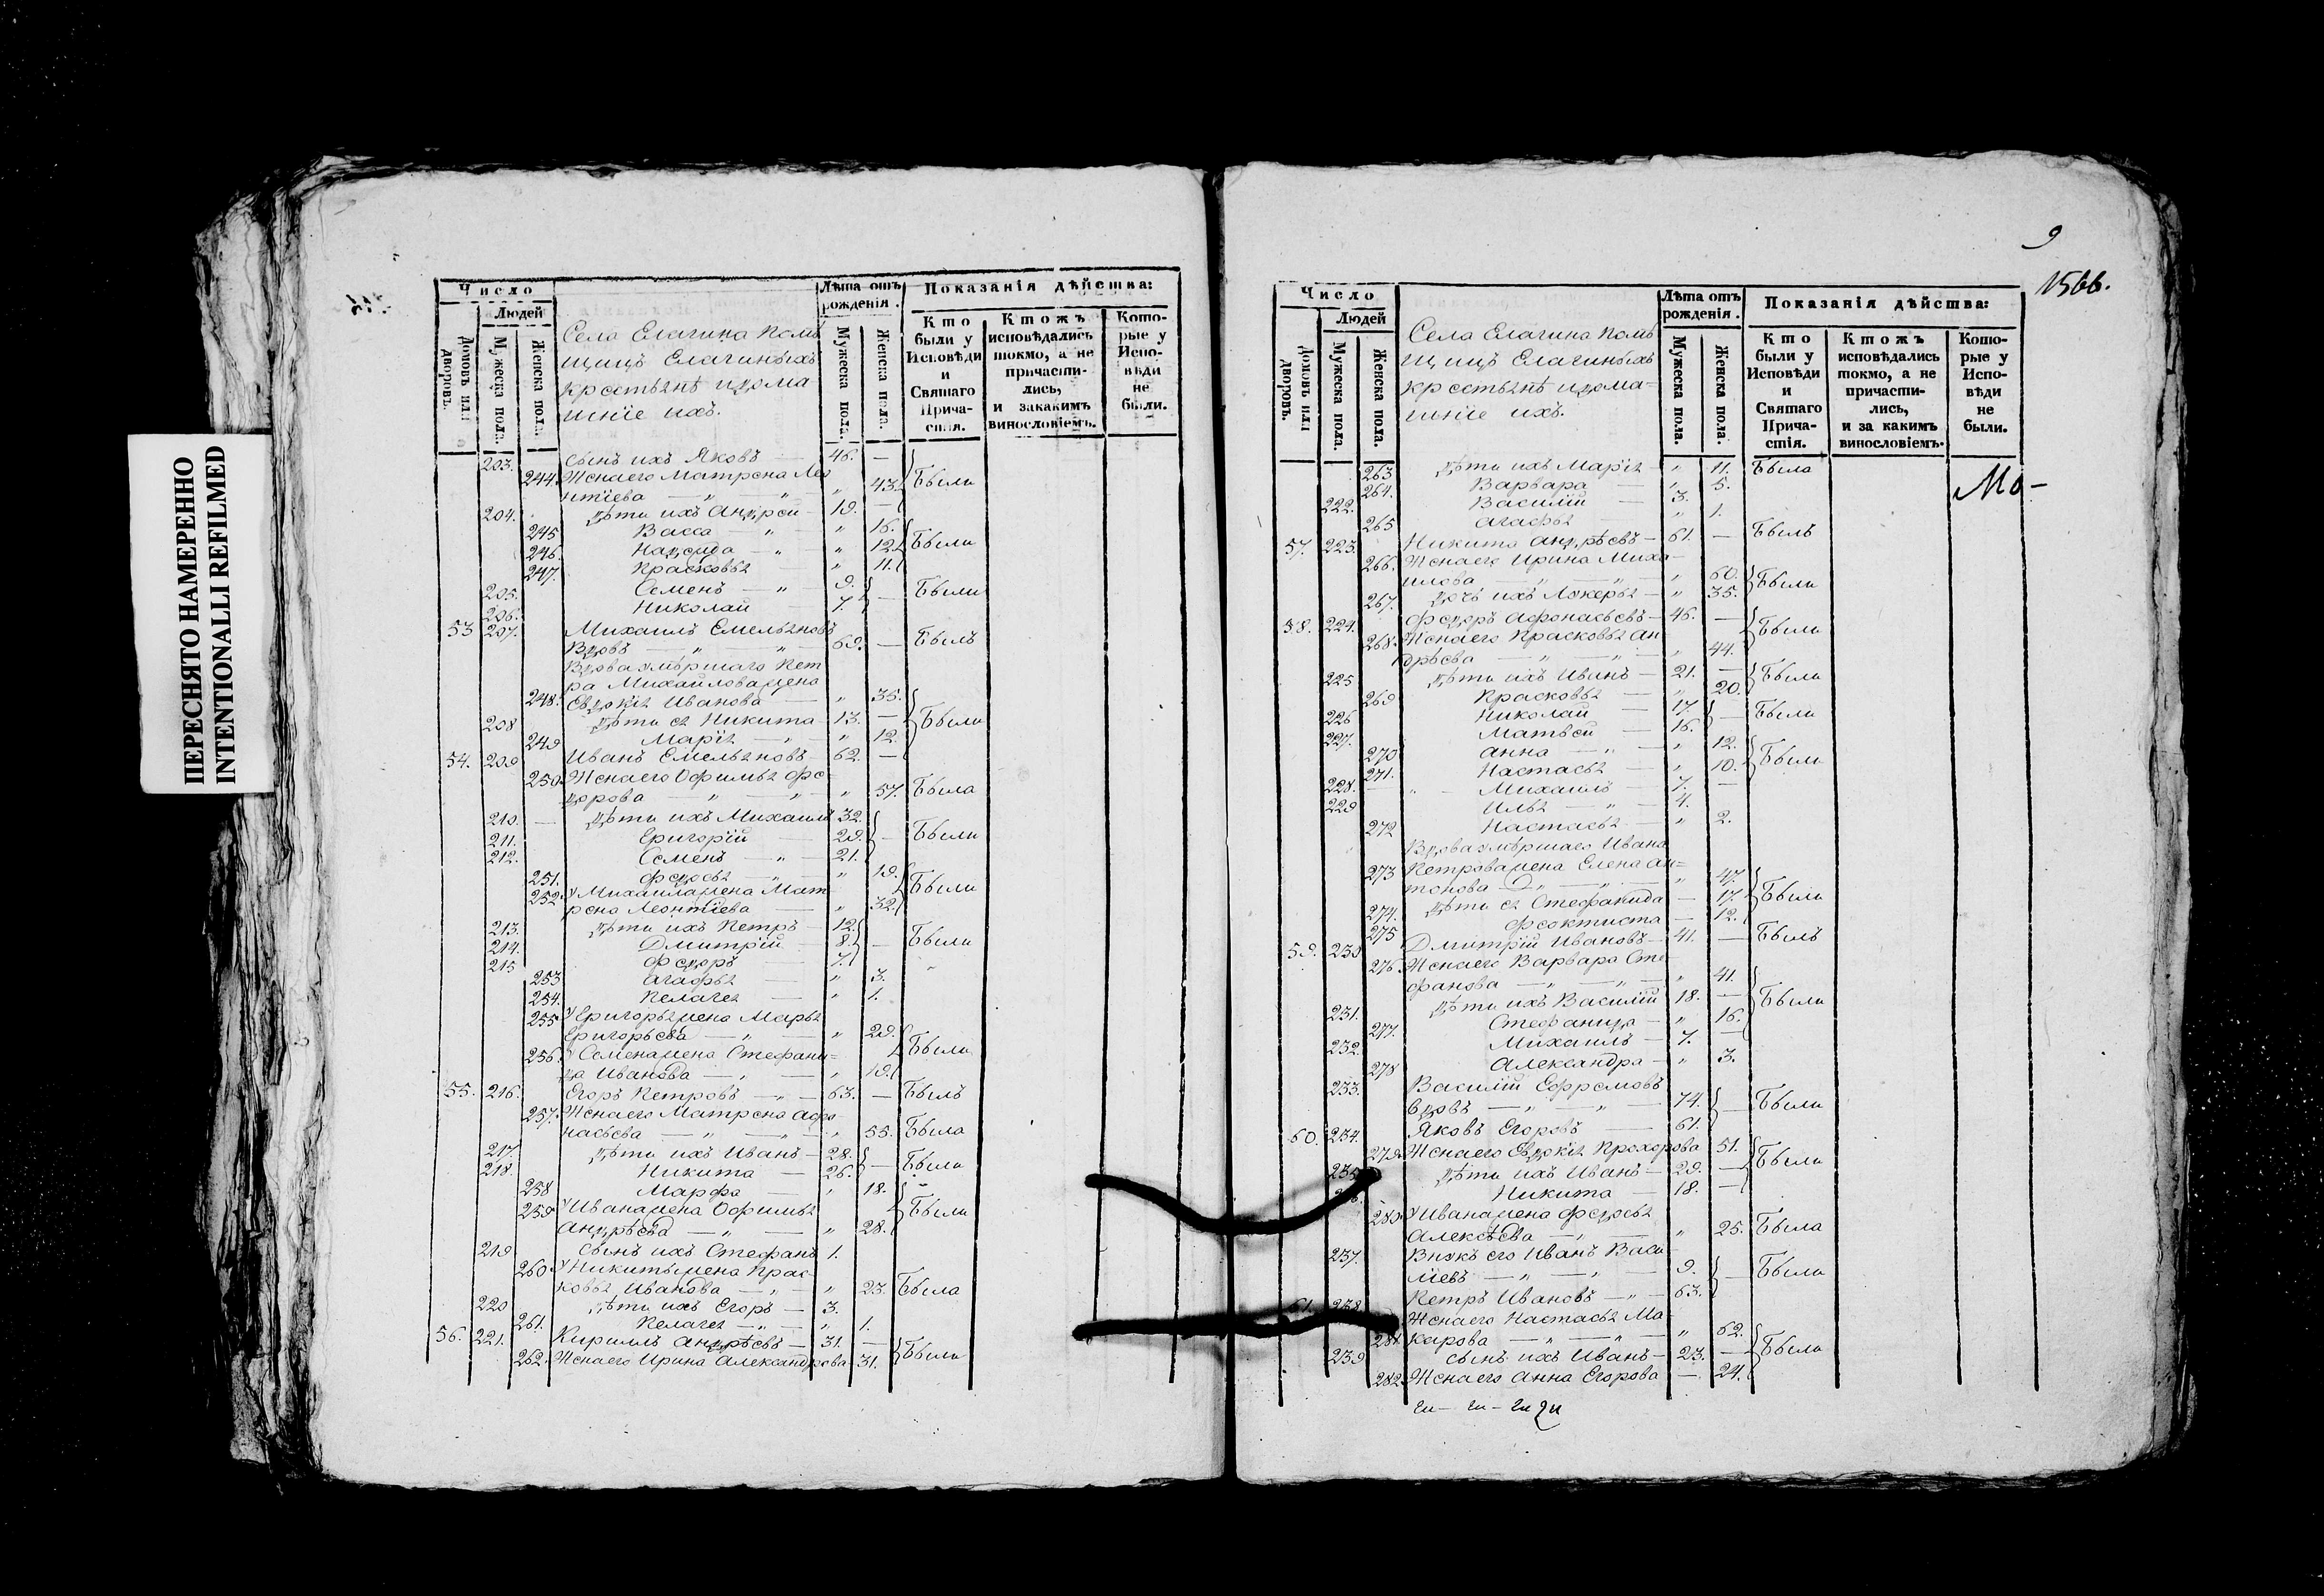 ПЕРЕСНЯТО НАМЕРЕННО
INTENTIONALLI REFILMED
Число
Людей
Домовъ или дворовъ.
Мужеска пола.
Женска пола.
Села Елагина помѣ
щицъ Елагиныхъ
крестьянѣ идома
шнїе ихъ.
Лѣта отъ рожденія.
Мужеска пола.
Женска пола.
Показанія дѣйства:
Кто были у Исповѣди и Святаго Прича- стія.
Ктожъ исповѣдались токмо, а не причасти- лись, и закакимъ винословіемъ.
Кото- рые у Испо- вѣди не были.
203. сынъ ихъ Яковъ — 46. —
244. Женаего Матрена Лео
нтїева — " — " " 43. Были
204. дѣти ихъ Андрей — 19. —
245 Васса — " " 16.
246. Надежда — " " 12. Были
247. Прасковья " 11.
205. Семенъ — " 9. — Были
206. Николай 7.
53 207. Михаилъ Емельяновъ
Вдовъ — " " 69. — Былъ
Вдова умѣршаго Пет
ра Михайлова жена
248. Евдокїя Иванова — " 35.
208 дѣти ея Никита 13. — Были
249 Марїя — " " 12.
54. 209 Иванъ Емельяновъ 62. —
250. Женаего Офимья Фе-
дорова — " — " " 57. Была
210. — дѣти ихъ Михаилъ 32.
211. Григорїй 29. — Были
212. Семенъ — " 21.
251. Федосья — " " 19.
252 У Михаила жена Мат Были
рена Леонтїева — " 32.
213. дѣти ихъ Петръ — 12.
214. Дмитрїй 8. — Были
215 Федоръ 7.
253 Агафья — " 3.
254. Пелагея — " 1.
255 У Григорья жена Марья
Григорьева — " — " 29.
256. У Семена жена Стефани= Были
да Иванова — " — " 19.
55. 216. Егоръ Петровъ — " — 63. — Былъ
257. Женаего Матрена Афо
насьева — " — " — " 55. Была
217. дѣти ихъ Иванъ — 28.
218. Никита — 26. — Были
258 Марфа — " 18.
259 У Ивана жена Офимья Были
Андрѣева — " — " 28.
219 сынъ ихъ Стефанъ 1.
260 У Никиты жена Прас-
ковья Иванова — " — " 23. Была
220 дѣти ихъ Егоръ — 3.
261. Пелагея — " — " 1.
56. 221. Кирилъ Андрѣевъ — 31. —
262. Женаего Ирина Александрова 31. Были
9
1566.
Число
Людей
Домовъ или дворовъ.
Мужеска пола.
Женска пола.
Села Елагина помѣ
щицъ Елагиныхъ
крестьянѣ идома=
шнїе ихъ.
Лѣта отъ рожденія.
Мужеска пола.
Женска пола.
Показанія дѣйства:
Кто были у Исповѣди и Святаго Прича- стія.
Ктожъ исповѣдались токмо, а не причасти- лись, и за какимъ винословіемъ.
Кото- рые у Испо- вѣди не были.
263 дѣти ихъ Марїя — " 11. Была
264. Варвара — " 5.
222. Василїй — 3.
265 Агафья " 1.
57. 223. Никита Андрѣевъ — 61. — Былъ
266. Женаего Ирина Миха
илова — " — " — " 60. Были
267. дочь ихъ Лукерья — " 35.
58. 224. Федоръ Афонасьевъ — 46. —
268. Женаего Прасковья Ан Были
дрѣева — " — " — " 44.
225 дѣти ихъ Иванъ — 21. — Были
269 Прасковья — " 20.
226 Николай — 17. — Были
227. Матвей — 16.
270 Анна — " — " 12. Были
271. Настасья — " 10.
228. Михаилъ — 7. —
229 Илья — " — 4.
272 Настасья — " 2.
Вдова умѣршаго Ивана
273 Петрова жена Елена Ан=
тонова — " — " — " 47.
274. дѣти ея Стефанида — 17. Были
275 Феоктиста — 12.
59. 230 Дмитрїй Ивановъ — 41. — Былъ
276. Женаего Варвара Сте
фанова — " — " — " 41.
231. дѣти ихъ Василїй 18. — Были
277. Стефанида — " 16.
232. Михаилъ — 7. —
278 Александра — " 3.
233. Василїй Ефремовъ
вдовъ — " — " — 74. — Были
60. 234. Яковъ Егоровъ — 61.
279. Женаего Евдокїя Прохорова 51.
235. дѣти ихъ Иванъ — 29. — Были
236. Никита — 18. —
280. У Ивана жена Федосья
Алексѣева — " — " 25. Была
237. Внукъ его Иванъ Васи
лїевъ — " — " — 9. — Были
61. 238. Петръ Ивановъ — " — 63.
Женаего Настасья Ма-
281. карова — " — " — " 62.
239 сынъ ихъ Иванъ — 23. — Были
282. Женаего Анна Егорова — 24.